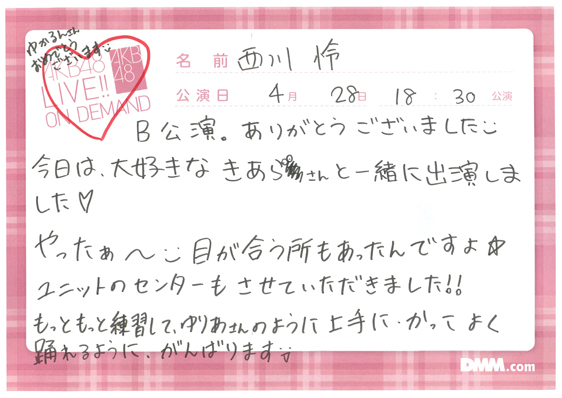 ゆかるんさん
おめでとう
ございます
AKB48
LIVE!!
ON DEMAND
AKB
48
名前 西川 怜
公演日 4月 28日 18:30 公演
B公演。ありがとうございました
今日は、大好きな きあらさんと一緒に出演しま
した♡
やったぁ〜 目が合う所もあったんですよ☆
ユニットのセンターも させていただきました!!
もっともっと練習して、ゆりあさんのように上手に、かっこよく
踊れるように、がんばります
DMM.com